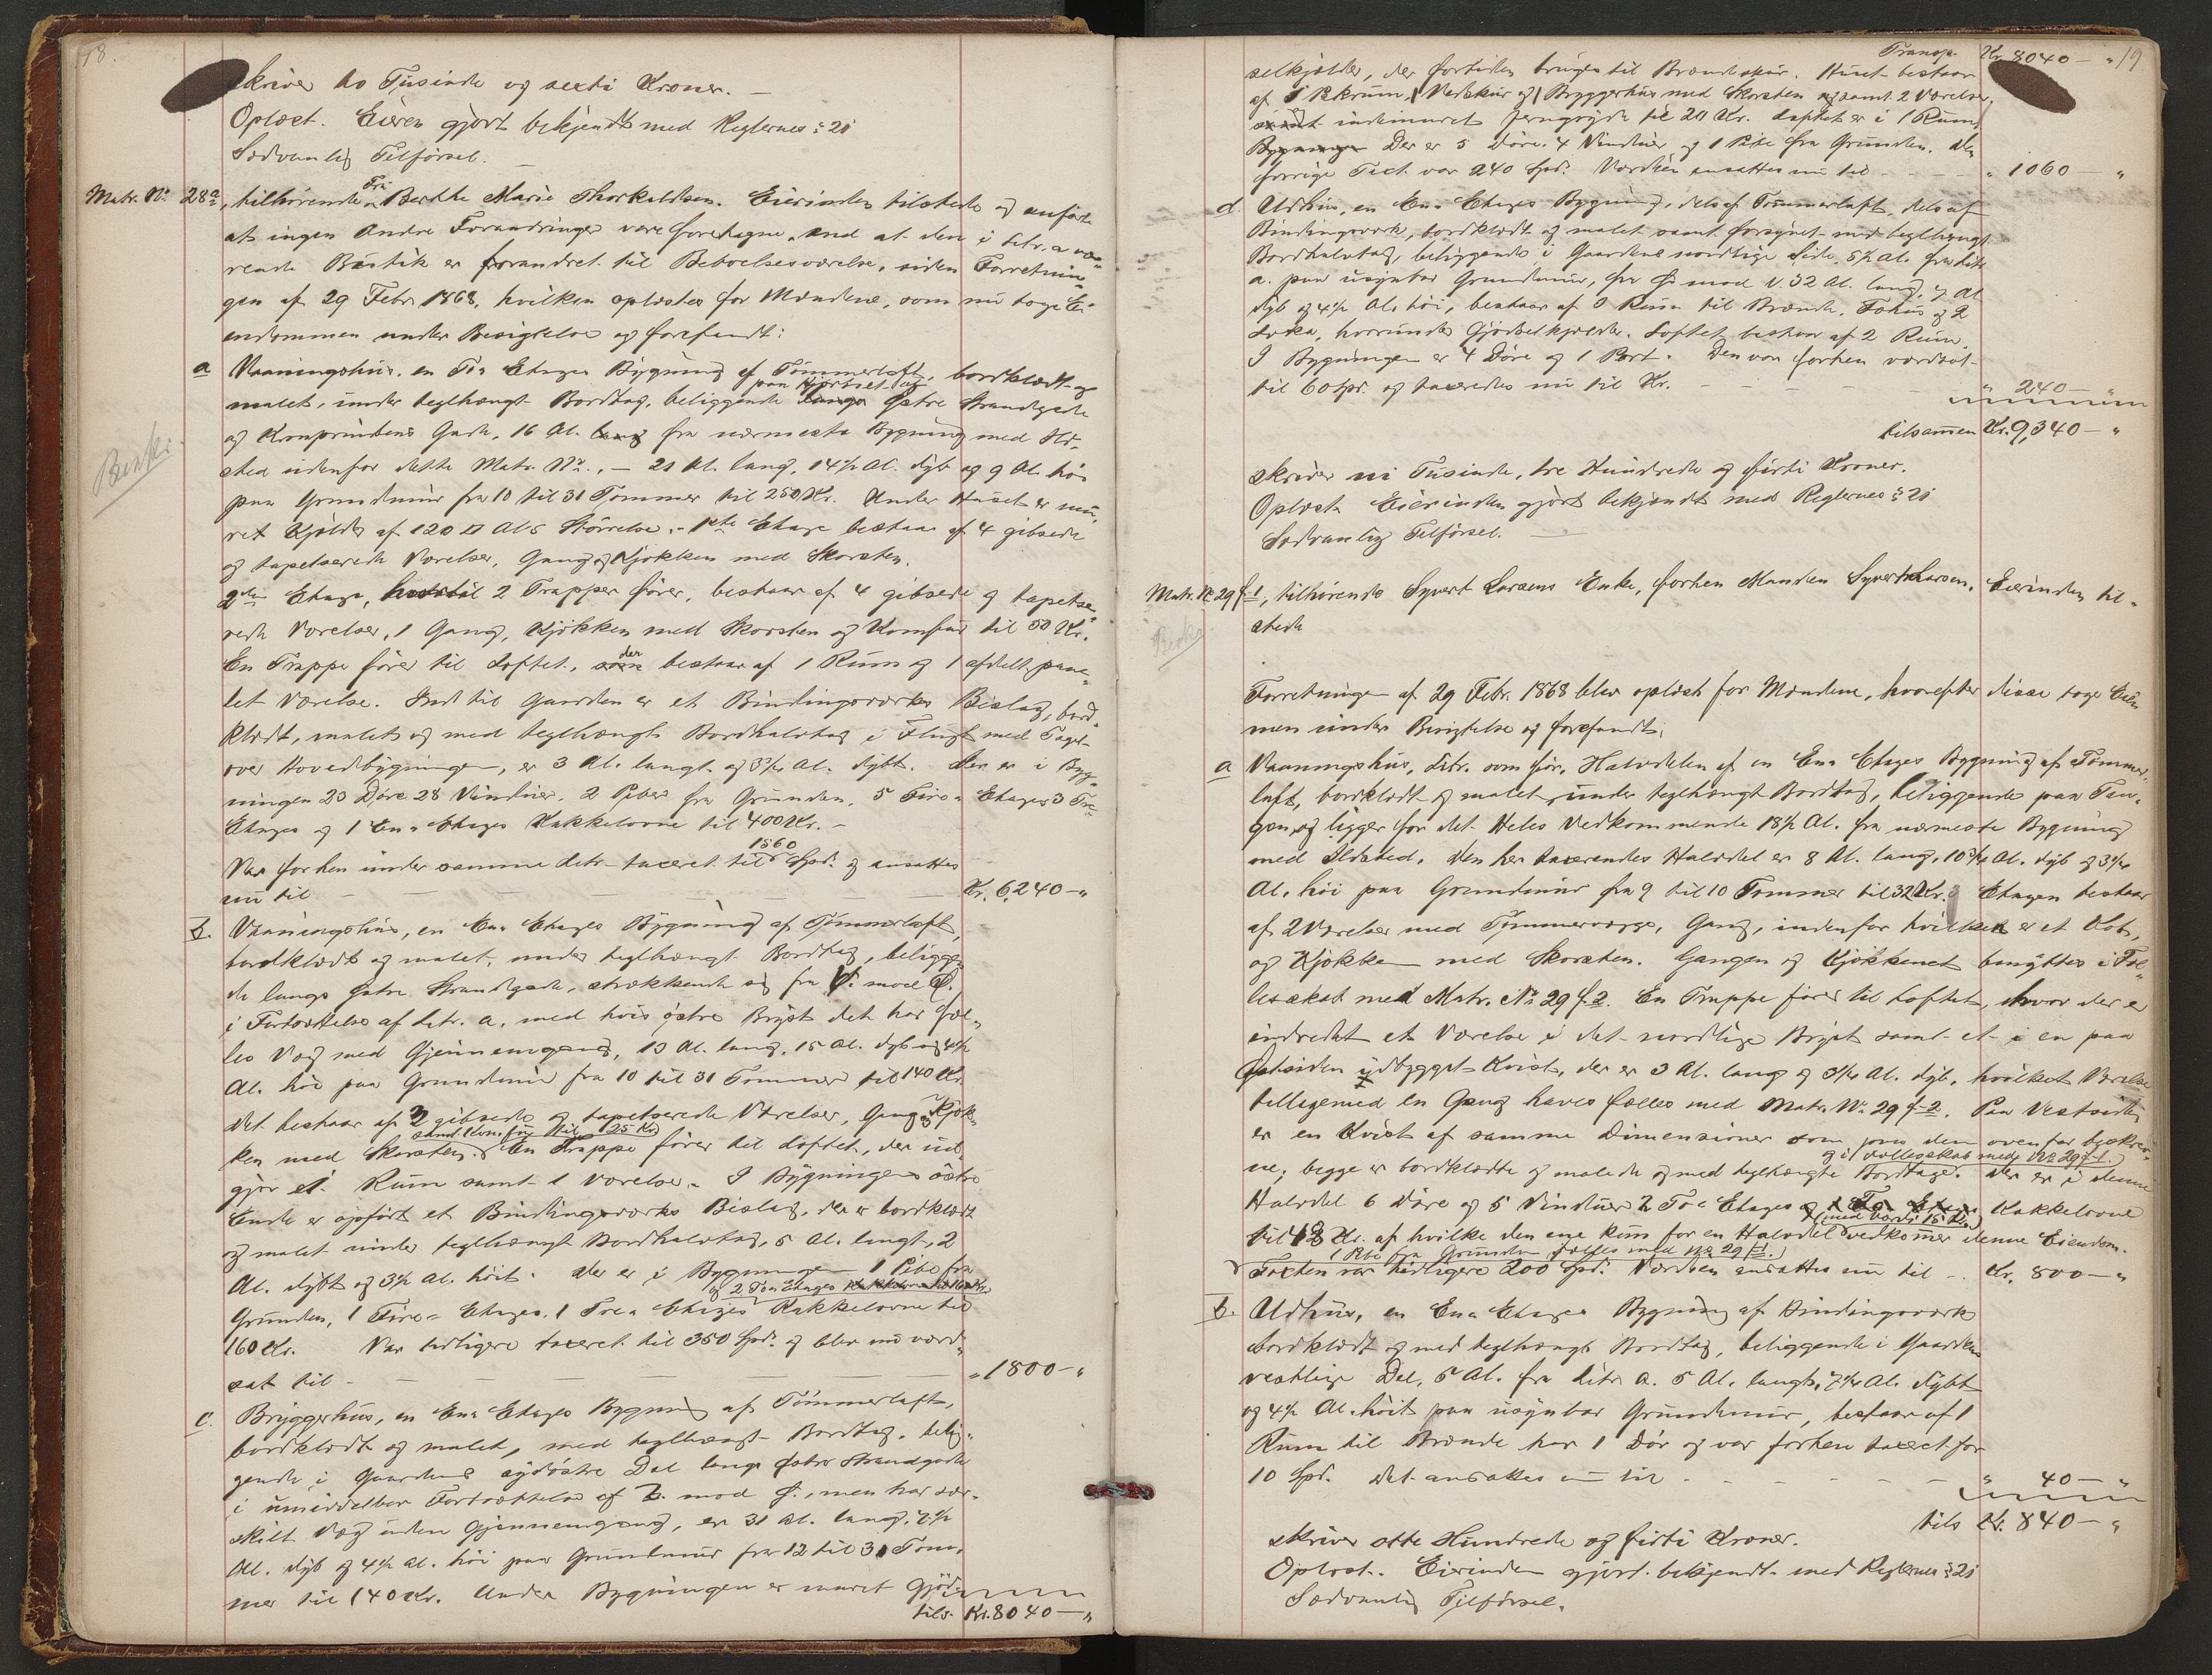 18.
skriver to Tusinde og sexti Kroner. —
Oplæst. Eieren gjort bekjendt med Reglernes § 21
Sædvanlig Tilførsel. —
Matr. No. 28a, tilhørende Fru Berthe Marie Thorkildsen. Eierinden tilstede og anførte
at ingen Andre Forandringer vare foretagne, end at den i Litr. a væ-
rende Butik er forandret til Beboelsesværelse, siden Forretnin-
gen af 29 Febr. 1868, hvilken oplæstes for Mændene, som nu toge Ei-
endommen under Besigtelse og forefandt:
Benker
a Vaaningshus, en To= Etages Bygning af Tømmerlaft, bordklædt og
malet, under teglhængt Bordtag, beliggende paa Hjørnet af Østre Strandgade
og Kronprindsens Gade, 16 Al. fra nærmeste Bygning med Ild-
sted udenfor dette Matr. No., — 21 Al. lang, 14½ Al. dyb og 9 Al. høi
paa Grundmur fra 10 til 31 Tommer til 250 Kr. Under Huset er mu-
ret Kjelder af 120 □ Als Størrelse. - 1ste Etage bestaar af 4 gibsede
og tapetserede Værelser, Gang og Kjøkken med Skorsten.
2den Etage, hvortil 2 Trapper fører, bestaar af 4 gibsede og tapetse-
rede Værelser, 1 Gang, Kjøkken med Skorsten og Komfur til 50 Kr.
En Trappe fører til Loftet, der bestaar af 1 Rum og 1 afdelt pane-
let Værelse. Ind til Gaarden er et Bindingsværks Bislag, bord-
klædt, malet og med teglhængt Bordhalvtag i Flugt med Taget
over Hovedbygningen, er 3 Al. langt og 3¾ Al. dybt. Der er i Byg-
ningen 23 Døre 28 Vinduer, 2 Piber fra Grunden, 5 Fire= Etages 3 Tre-
Etages og 1 En= Etages Kakkelovne til 400 Kr. —
Var forhen under samme Litr. taxeret til 1560 Spd. og ansattes
nu til — — — — Kr. 6,240 — "
b. Vaaningshus, en En= Etages Bygning af Tømmerlaft,
bordklædt og malet, under teglhængt Bordtag, beliggen-
de langs Østre Strandgade, strækkende sig fra V. mod Ø.
i Fortsættelse af Litr. a, med hvis østre Bryst det har fæl-
les Væg med Gjennemgang, 13 Al. lang, 15 Al. dyb og 4½
Al. høi paa Grundmur fra 10 til 31 Tommer til 140 Kr.
Det bestaar af 2 gibsede og tapetserede Værelser, Gang og Kjøk-
ken med Skorsten samt Komfur til 25 Kr. En Trappe fører til Loftet, der ud-
gjør et Rum samt 1 Værelse. I Bygningens østre
Ende er opført et Bindingsværks Bislag, der er bordklædt
og malet under teglhængt Bordhalvtag, 5 Al. langt, 2
Al. dybt og 3½ Al. høit. Der er i Bygningen 1 Pibe fra
Grunden, 1 Fire= Etages, 1 Tre= Etages og 2 To= Etages Kakkelovne til
160 Kr. Var tidligere taxeret til 350 Spd. og blev nu værd-
sat til — — — — " 1800 — "
c. Bryggerhus, en En= Etages Bygning af Tømmerlaft,
bordklædt og malet, med teglhængt Bordtag, belig-
gende i Gaardens sydøstre Del langs Østre Strandgade
i umiddelbar Fortsættelse af b. mod Ø., men har sær-
skilt Væg uden Gjennemgang, er 31 Al. lang, 7½
Al. dyb og 4½ Al. høi paa Grundmur fra 12 til 31 Tom-
mer til 140 Kr. Under Bygningen er muret Gjød-
tils. Kr. 8040 — "
Transp. Kr. 8040 — " 19
selkjelder, der fortiden bruges til Brændeskur. Huset bestaar
af 1 Rum, Vedskur og 1 Bryggerhus med Skorsten og samt 2 Værelser,
indemuret Jerngryde til 20 Kr. Loftet er i 1 Rum,
Der er 5 Døre, 4 Vinduer og 1 Pibe fra Grunden. Den
forrige Taxt var 240 Spd. Værdien ansattes nu til — — " 1060 — "
d. Udhus, en En= Etages Bygning, dels af Tømmerlaft, dels af
Bindingsværk, bordklædt og malet samt forsynet med teglhængt
Bordhalvtag, beliggende i Gaardens nordlige Side, 5½ Al. fra Litr.
a. paa usynbar Grundmur, fra Ø mod V. 32 Al. lang, 7 Al.
dyb og 4½ Al. høi, bestaar af 3 Rum til Brænde, Fæhus og 2
Loka, hvorunder Gjødselkjelder. Loftet bestaar af 2 Rum.
I Bygningen er 4 Døre og 1 Port. Den var forhen værdsat
til 60 Spd. og taxeredes nu til Kr. — — " 240 — "
tilsammen Kr. 9,340 — "
skriver ni Tusinde, tre Hundrede og førti Kroner.
Oplæst. Eierinden gjort bekjendt med Reglernes § 21
Sædvanlig Tilførsel. —
Matr. No. 29 f 1, tilhørende Syvert Larsens Enke, forhen Manden Syvert Larsen. Eierinden til-
stede
Forretningen af 29 Febr. 1868 blev oplæst for Mændene, hvorefter disse toge Eien-
men under Besigtelse og forefandt:
a Vaaningshus, Litr. som før, Halvdelen af en En= Etages Bygning af Tømmer-
laft, bordklædt og malet, under teglhængt Bordtag, beliggende paa Tan-
gen, og ligger for det Heles Vedkommende 18½ Al. fra nærmeste Bygning
med Ildsted. Den her taxerendes Halvdel er 8 Al. lang, 10¾ Al. dyb og 3¾
Al. høi paa Grundmur fra 9 til 10 Tommer til 32 Kr. Etagen bestaar
af 2 Værelser med Tømmervægge, Gang, indenfor hvilken er et Kot,
og Kjøkken med Skorsten. Gangen og Kjøkkenet benyttes i Fæl-
lesskab med Matr. No. 29 f 2. En Trappe fører til Loftet, hvor der er
indredet et Værelse i det nordlige Bryst samt et i en paa
Østsiden udbygget Kvist, der er 3 Al. lang og 3¼ Al. dyb, hvilket Værelse
tilligemed en Gang haves fælles med Matr. No. 29 f 2. Paa Vestsiden
er en Kvist af samme Dimensioner som den ovenfor beskrev-
ne, og i Fællesskab med No 29 f 1. begge er bordklædte og malede og med teglhængte Bordtage. Der er i denne
Halvdel 6 Døre og 5 Vinduer 2 To= Etages Kakkelovne
til 18 Kr. af hvilke den ene kun for en Halvdel (med Værdi 15 Kr.) vedkommer denne Eiendom.
1 Pibe fra Grunden fælles med No 29 f 1.
Taxten var tidligere 200 Spd. Værdien ansattes nu til — Kr. 800 — "
b. Udhus, en En= Etages Bygning af Bindingsværk
bordklædt og med teglhængt Bordtag, beliggende i Gaardens
vestlige Del, 5 Al. fra Litr. a. 5 Al. langt, 7¼ Al. dybt
og 4½ Al. høit paa usynbar Grundmur, bestaar af 1
Rum til Brænde har 1 Dør og var forhen taxeret for
10 Spd. Det ansattes nu til — — " 40 — "
tils Kr. 840 — "
skriver otte Hundrede og førti Kroner.
Oplæst. Eierinden gjort bekjendt med Reglernes § 21
Sædvanlig Tilførsel.